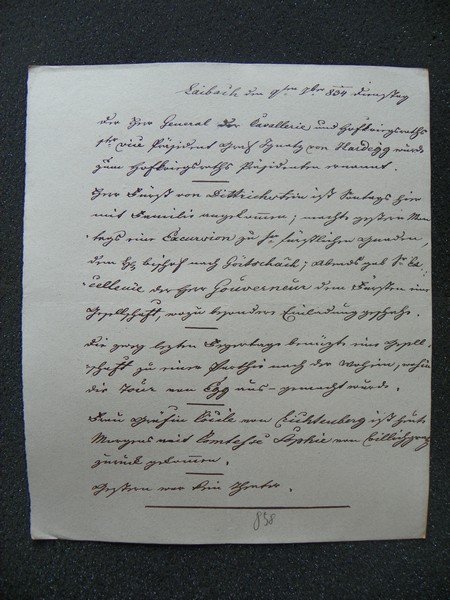 Laibach den 9ten 7br 834 Dienstag
Der Herr General der Cavallerie und Hofkriegsraths
1ter vice Präsident Graf Ignatz von Hardegg wurde
zum Hofkriegsraths Präsidenten ernannt.
Herr Fürst von Dittrichstein ist Sontags hier
mit Familie angekommen, machte gestern Mon-
tags eine Excursion zu Sr fürstlichen Gnaden,
dem H. Bischof nach Görtschach; Abends gab Se Ex-
cellenz der Herr Gouverneur dem Fürsten eine
Gesellschaft, wozu besondere Einladung geschahe.
Die zwey lezten Feyertage benützte eine Gesell-
schaft zu einer Parthie nach der Wochein, wohin
die Tour von Egg aus- gemacht wurde.
Frau Gräfin Cécile von Lichtenberg ist heute
Morgens mit Comtesse Sophie von
zurück gekommen.
Gestern war kein Theater.
858